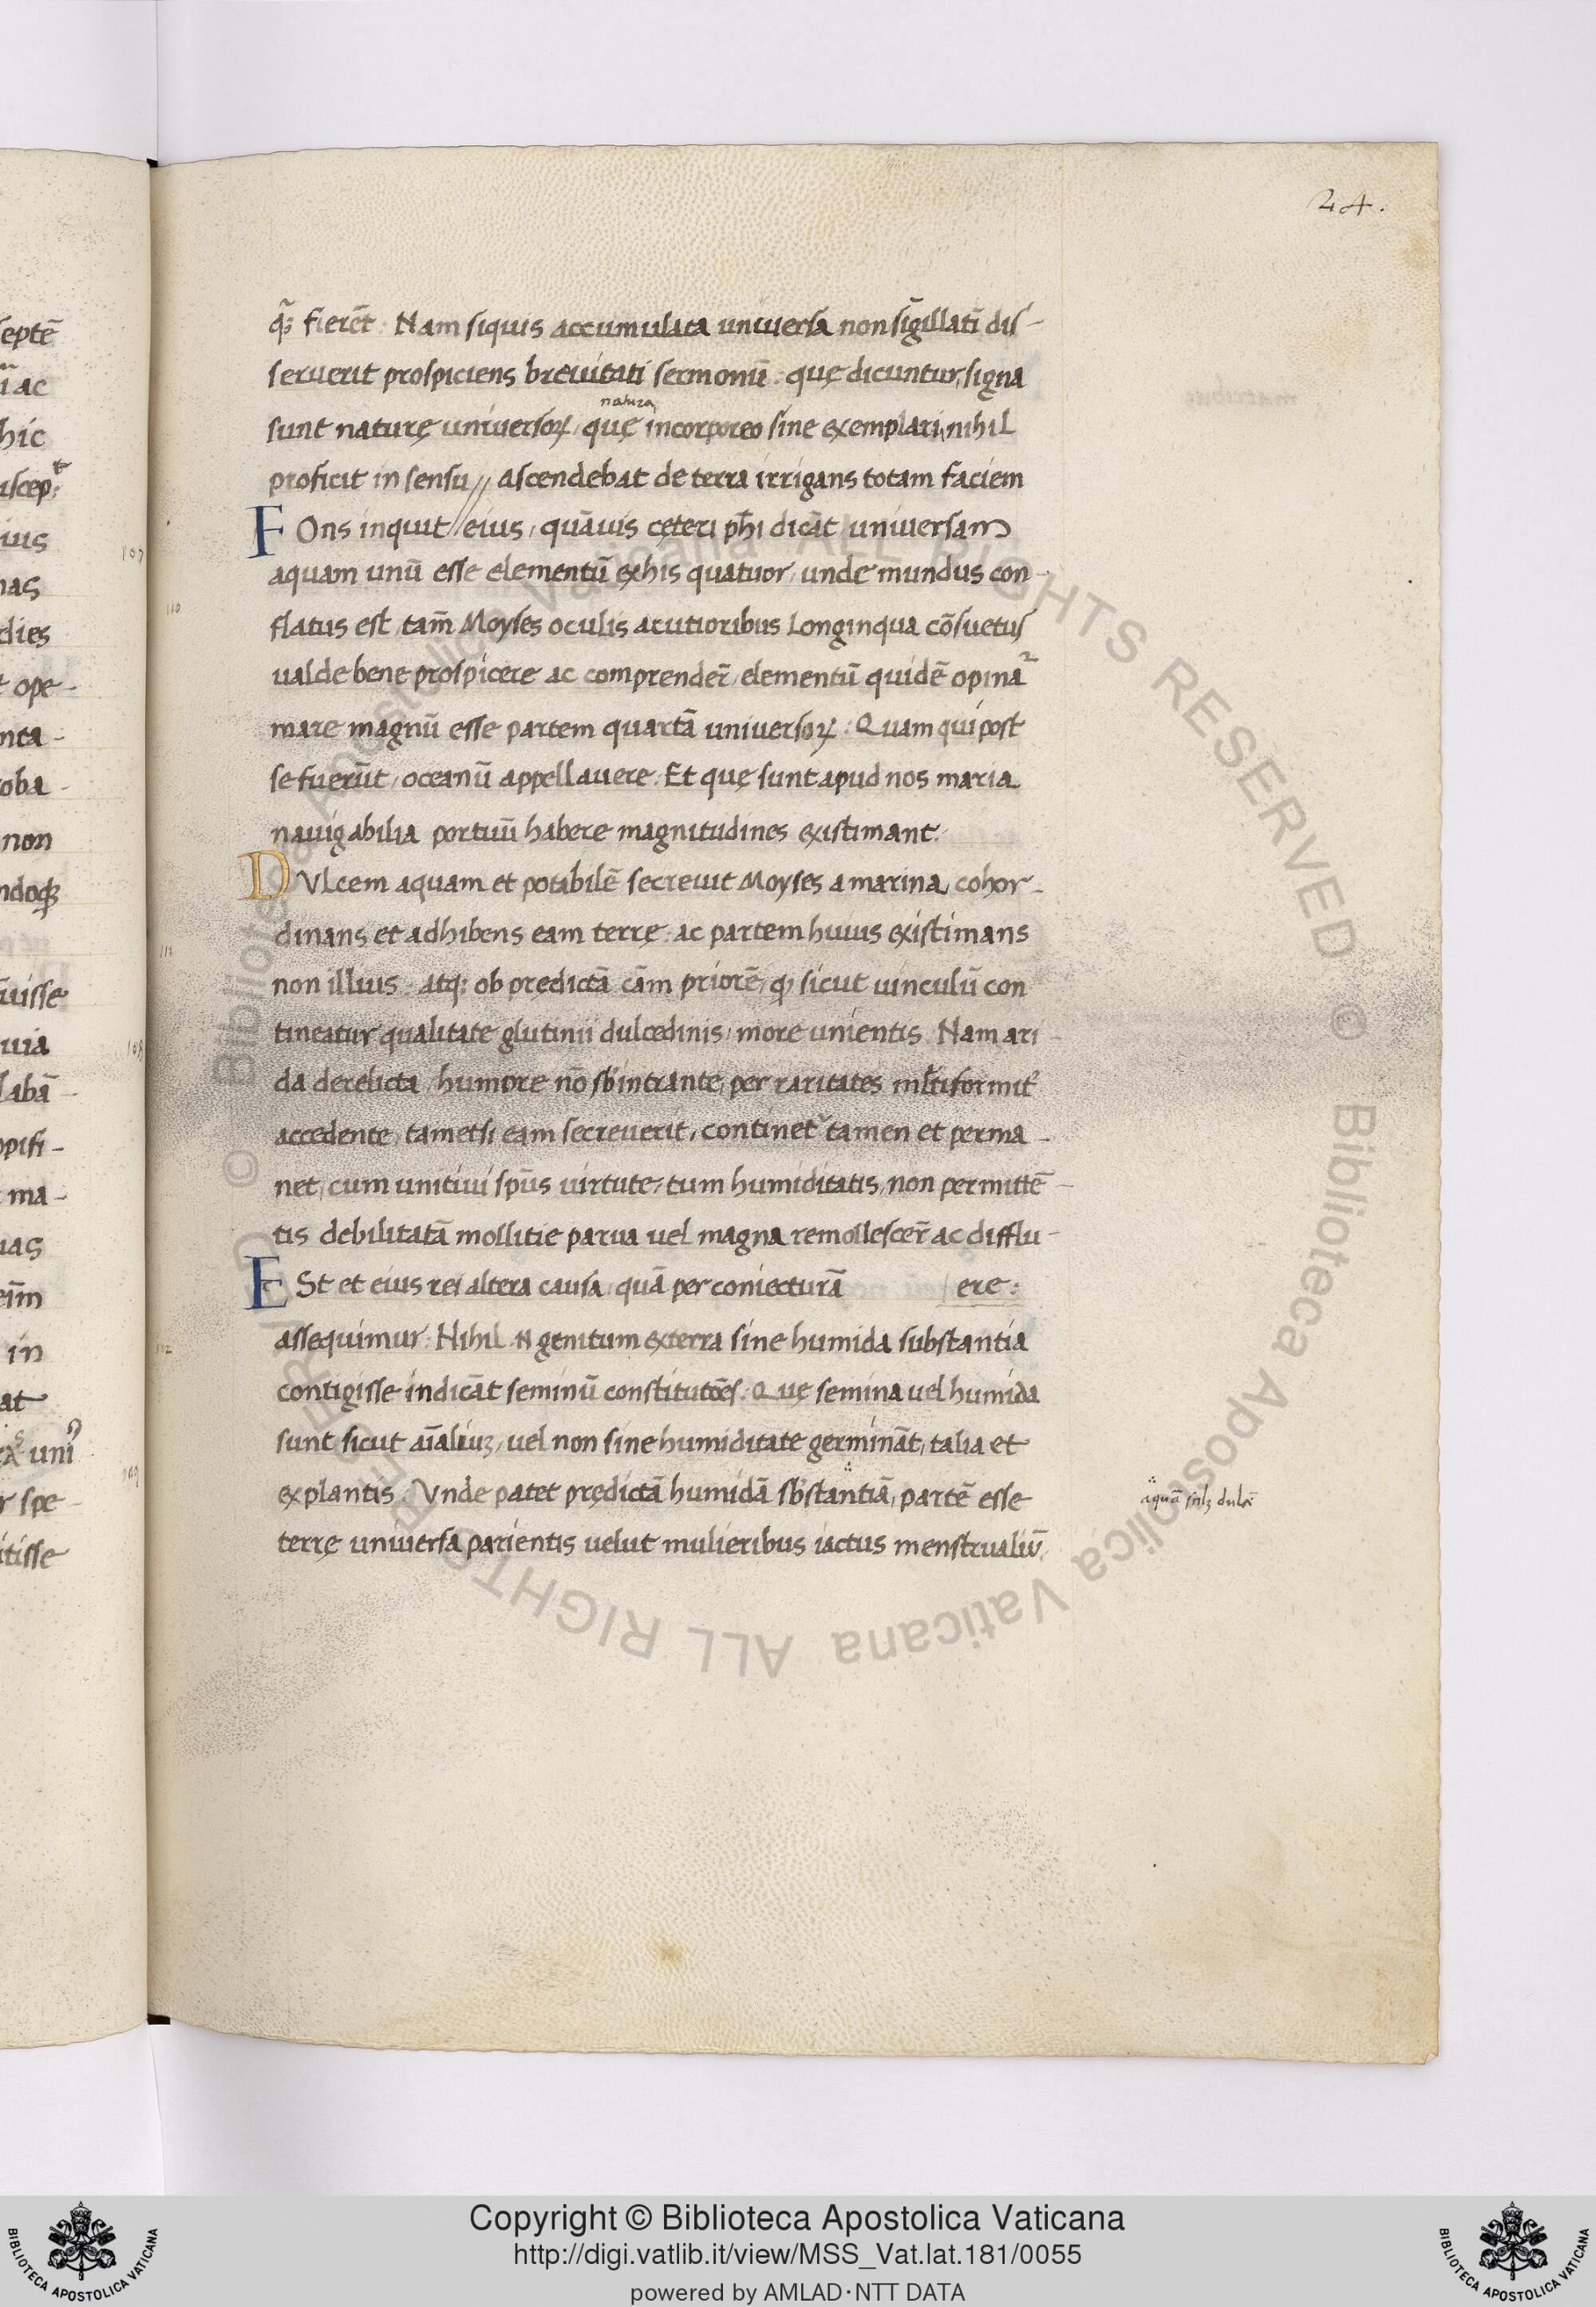 24.
septē
ī ac
hic
uscep
ius
nas
dies
t ope-
nta-
oba-
non
ndoqꝫ
uisse
uia
labā-
opifi-
ma-
uas
eīm
in
at
unī
r spe-
itisse
q̄ꝫ fierēt: Nam siquis accumulata universa non sīgillatī dis-
seruerit prospiciens brevitati sermonū: quę dicuntur, signa
natura
sunt naturę universoꝝ, quę incorporeo sine exemplari nihil
proficit in sensu // ascendebat de terra irrigans totam faciem
FOns inquit // eius, quāuis cęteri ph̄i dicāt universam
aquam unū esse elementū ex his quatuor, unde mundus con-
flatus est, tam̄ Moyses oculis acutioribus longinqua cōsuetus
ualde bene prospicere ac comprender̄, elementū quidē opinaᷣ
mare magnū esse partem quartā universoꝝ: Quam qui post
se fuerūt, oceanū appellauere: Et quę sunt apud nos maria
nauigabilia portuū habere magnitudines existimant.
DVlcem aquam et potabilē secreuit Moyses a marina, cohor-
dinans et adhibens eam terre: ac partem huius existimans
non illius: atq; ob prędictā cām priorē, ꝙ sicut uinculū con
tineatur qualitate glutinii dulcedinis, more unientis. Nam ari-
da derelicta, humore nō sb'intrante, per raritates ml̄tiformit'
accedente, tametsi eam secreuerit, continet' tamen et perma-
net, cum unitiui sp̄us uirtute, tum humiditatis, non permittē-
tis debilitatā mollitie parua uel magna remollescer̄ ac difflu-
ESt et eius rei altera causa, quā per coniecturā ere:
assequimur: Nihil .N. genitum ex terra sine humida substantia
contigisse indicāt seminū constitutōes: Quę semina uel humida
sunt sicut aīaliuꝫ, uel non sine humiditate germināt, talia et
ex plantis: Vnde patet prędictā humidā sb'stantiā, partē esse
terrę universa parientis uelut mulieribus iactus menstrualiū.
aquā dulcē
Copyright © Biblioteca Apostolica Vaticana
http://digi.vatlib.it/view/MSS_Vat.lat.181/0055
powered by AMLAD·NTT DATA
BIBLIOTECA APOSTOLICA VATICANA
BIBLIOTECA APOSTOLICA VATICANA
© Biblioteca Apostolica Vaticana ALL RIGHTS RESERVED © Biblioteca Apostolica Vaticana ALL RIGHTS RESERVED